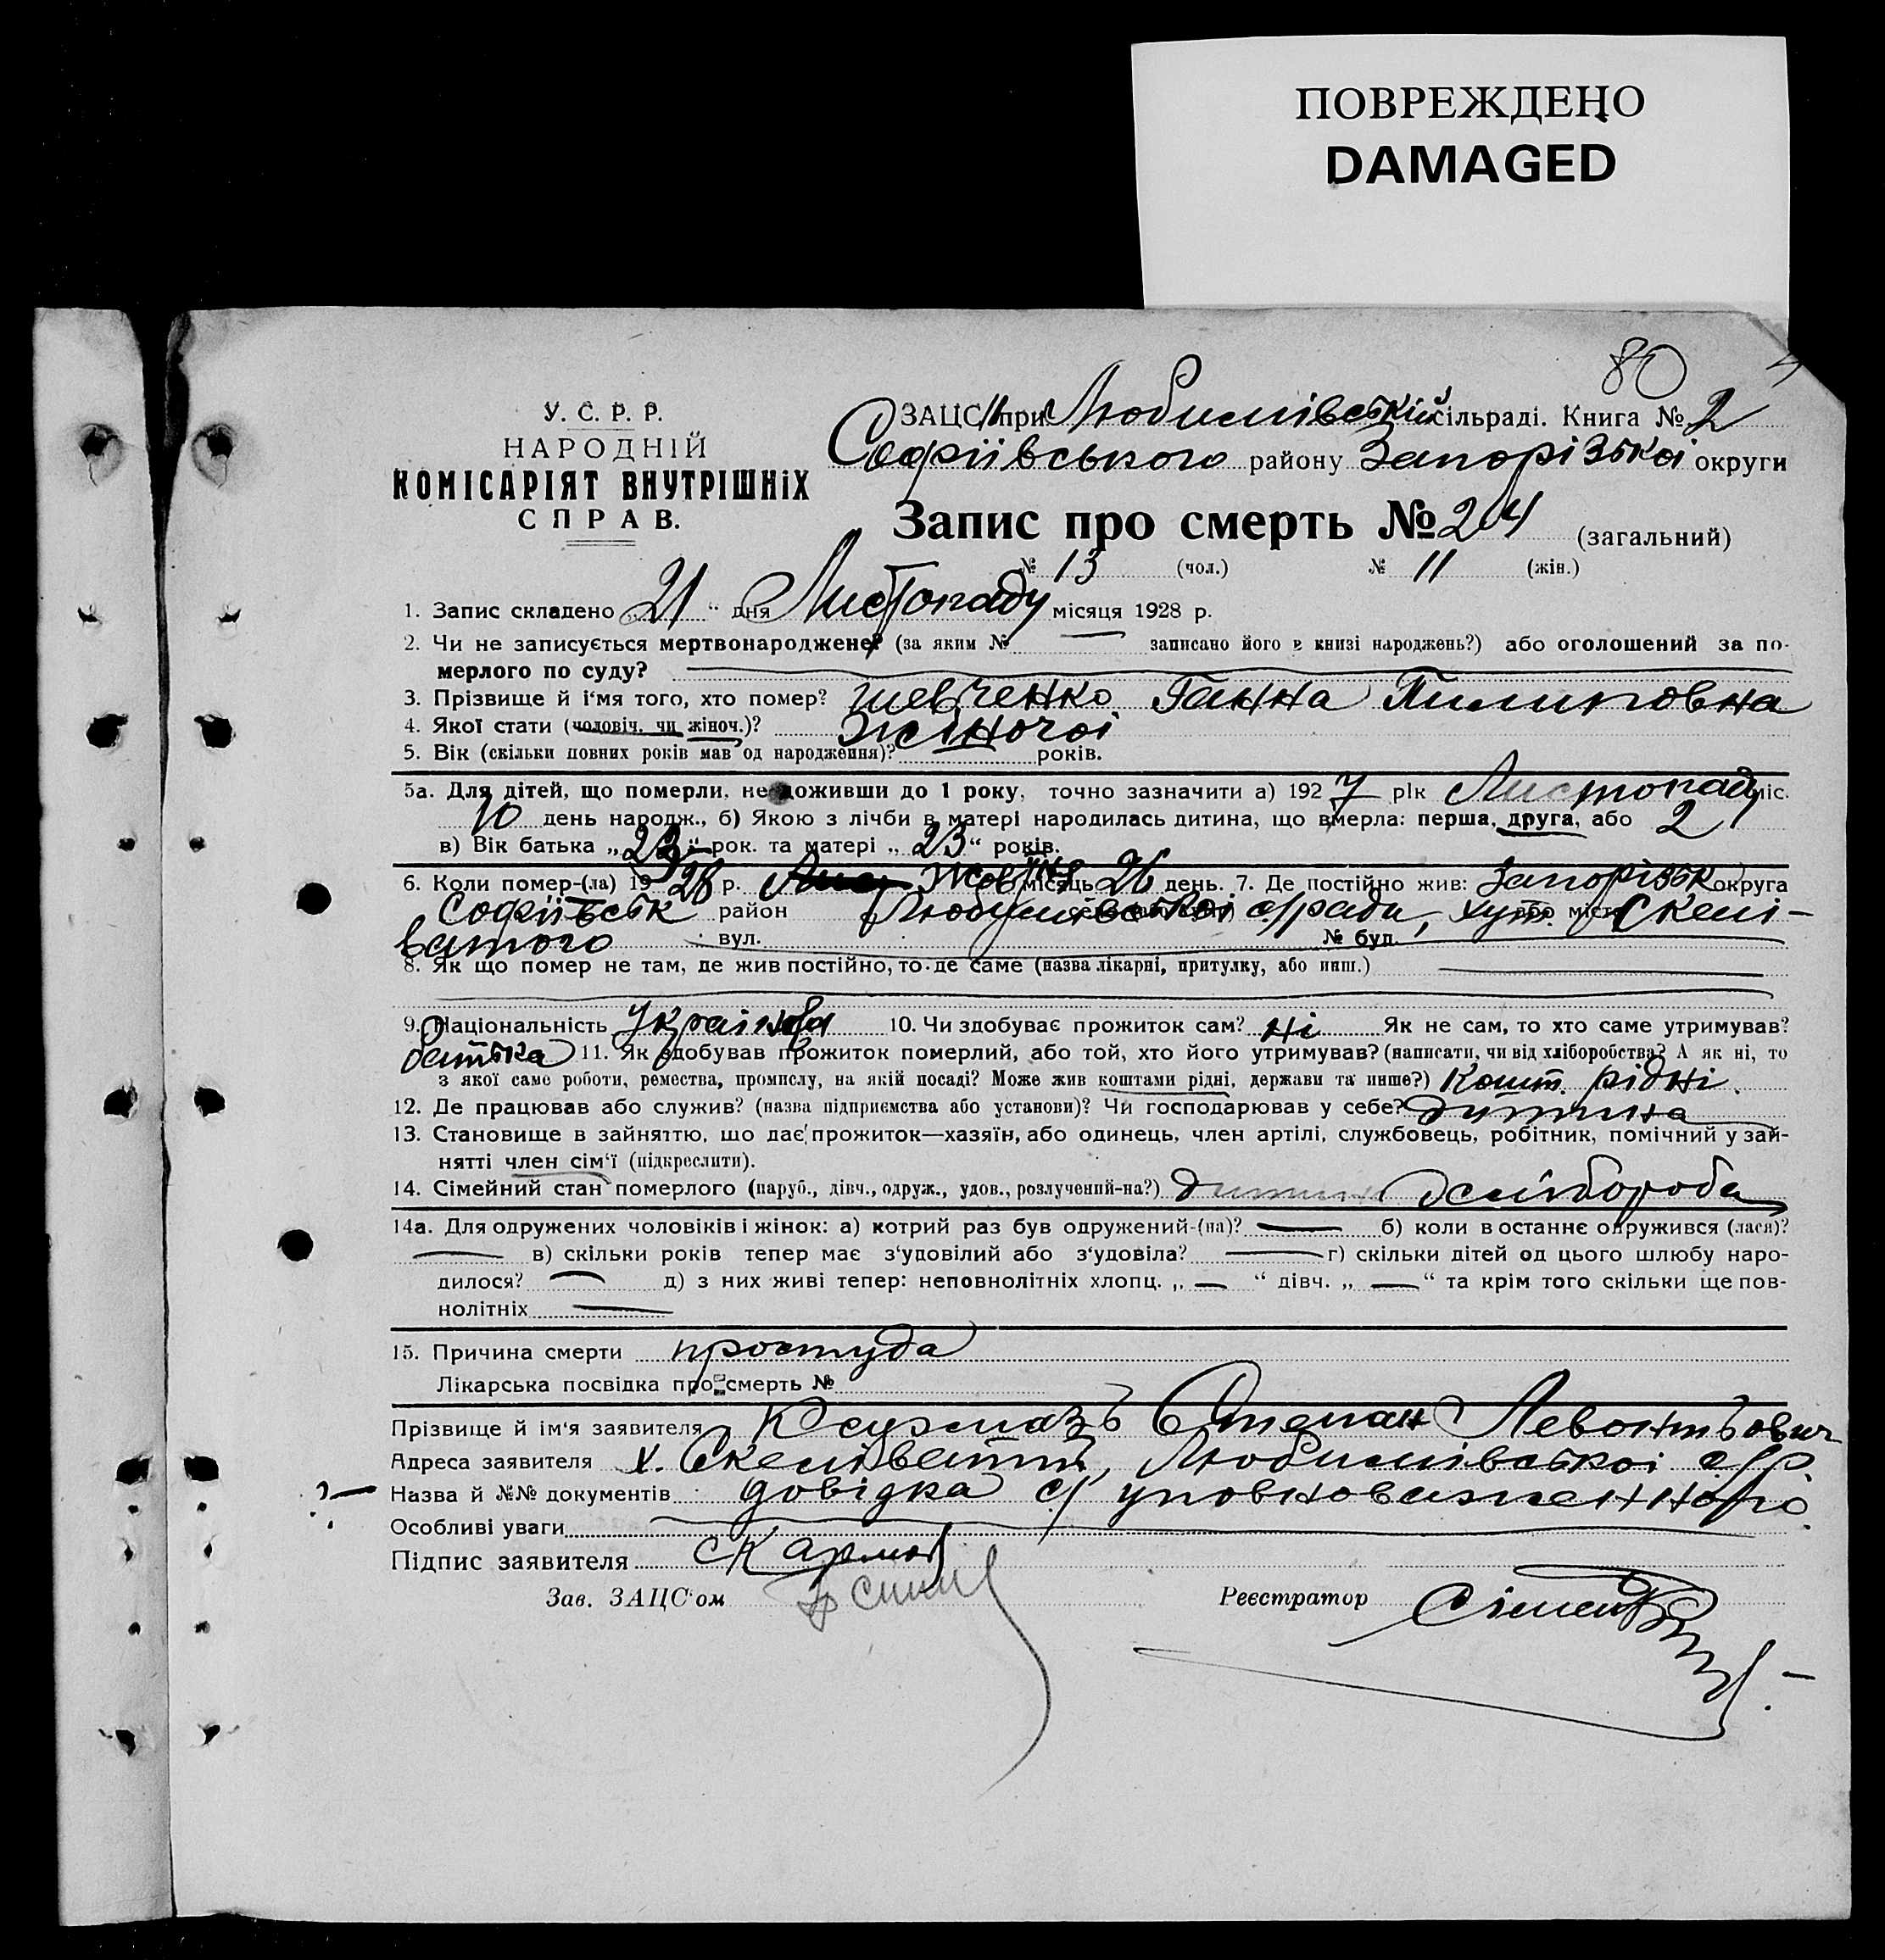 ПОВРЕЖДЕНО
DAMAGED
80
У. С. Р. Р.
НАРОДНІЙ
КОМІСАРІЯТ ВНУТРІШНІХ
СПРАВ.
ЗАЦС при Любимівській сільраді. Книга № 2
Софіївського району Запорізької округи
Запис про смерть № 24 (загальний)
№ 13 (чол.) № 11 (жін.)
1. Запис складено „21“ дня Листопаду місяця 1928 р.
2. Чи не записується мертвонароджене? (за яким № — записано його в книзі народжень?) або оголошений за по-
мерлого по суду?
3. Прізвище й ім‘я того, хто помер? Шевченко Ганна Пилиповна
4. Якої стати (чоловіч. чи жіноч.)? Жіночої
5. Вік (скільки повних років мав од народження)? років.
5а. Для дітей, що померли, не доживши до 1 року, точно зазначити а) 1927 рік Листопад міс.
10 день народж., б) Якою з лічби в матері народилась дитина, що вмерла: перша, друга, або 2
в) Вік батька „23“ рок. та матері „23“ років.
6. Коли помер-(ла) 1928 р. Жовтня місяць 26 день. 7. Де постійно жив: Запорізьк округа
Софіївськ район Любимівської с/рада, хут. або місто Скелі-
ватого вул. № буд.
8. Як що помер не там, де жив постійно, то де саме (назва лікарні, притулку, або инш.)
9. Національність Українка 10. Чи здобуває прожиток сам? ні Як не сам, то хто саме утримував?
батька 11. Як здобував прожиток померлий, або той, хто його утримував? (написати, чи від хліборобства? А як ні, то
з якої саме роботи, ремества, промислу, на якій посаді? Може жив коштами рідні, держави та инше?) Кошт. рідні.
12. Де працював або служив? (назва підприємства або установи)? Чи господарював у себе? дитина
13. Становище в зайняттю, що дає прожиток—хазяїн, або одинець, член артілі, службовець, робітник, помічний у зай-
нятті член сім‘ї (підкреслити).
14. Сімейний стан померлого (паруб., дівч., одруж., удов., розлучений-на?) дитина
14а. Для одружених чоловіків і жінок: а) котрий раз був одружений-(на)? — б) коли востаннє одружився (лася)?
— в) скільки років тепер має з‘удовілий або з‘удовіла? — г) скільки дітей од цього шлюбу наро-
дилося? — д) з них живі тепер: неповнолітніх хлопц. „—“ дівч. „—“ та крім того скільки ще пов-
нолітніх —
15. Причина смерти простуда
Лікарська посвідка про смерть №
Прізвище й ім‘я заявителя Степан
Адреса заявителя х. Скеліватий, Любимівської с/р.
Назва й №№ документів довідка с/уповноваженного
Особливі уваги
Підпис заявителя
Зав. ЗАЦС‘ом Реєстратор